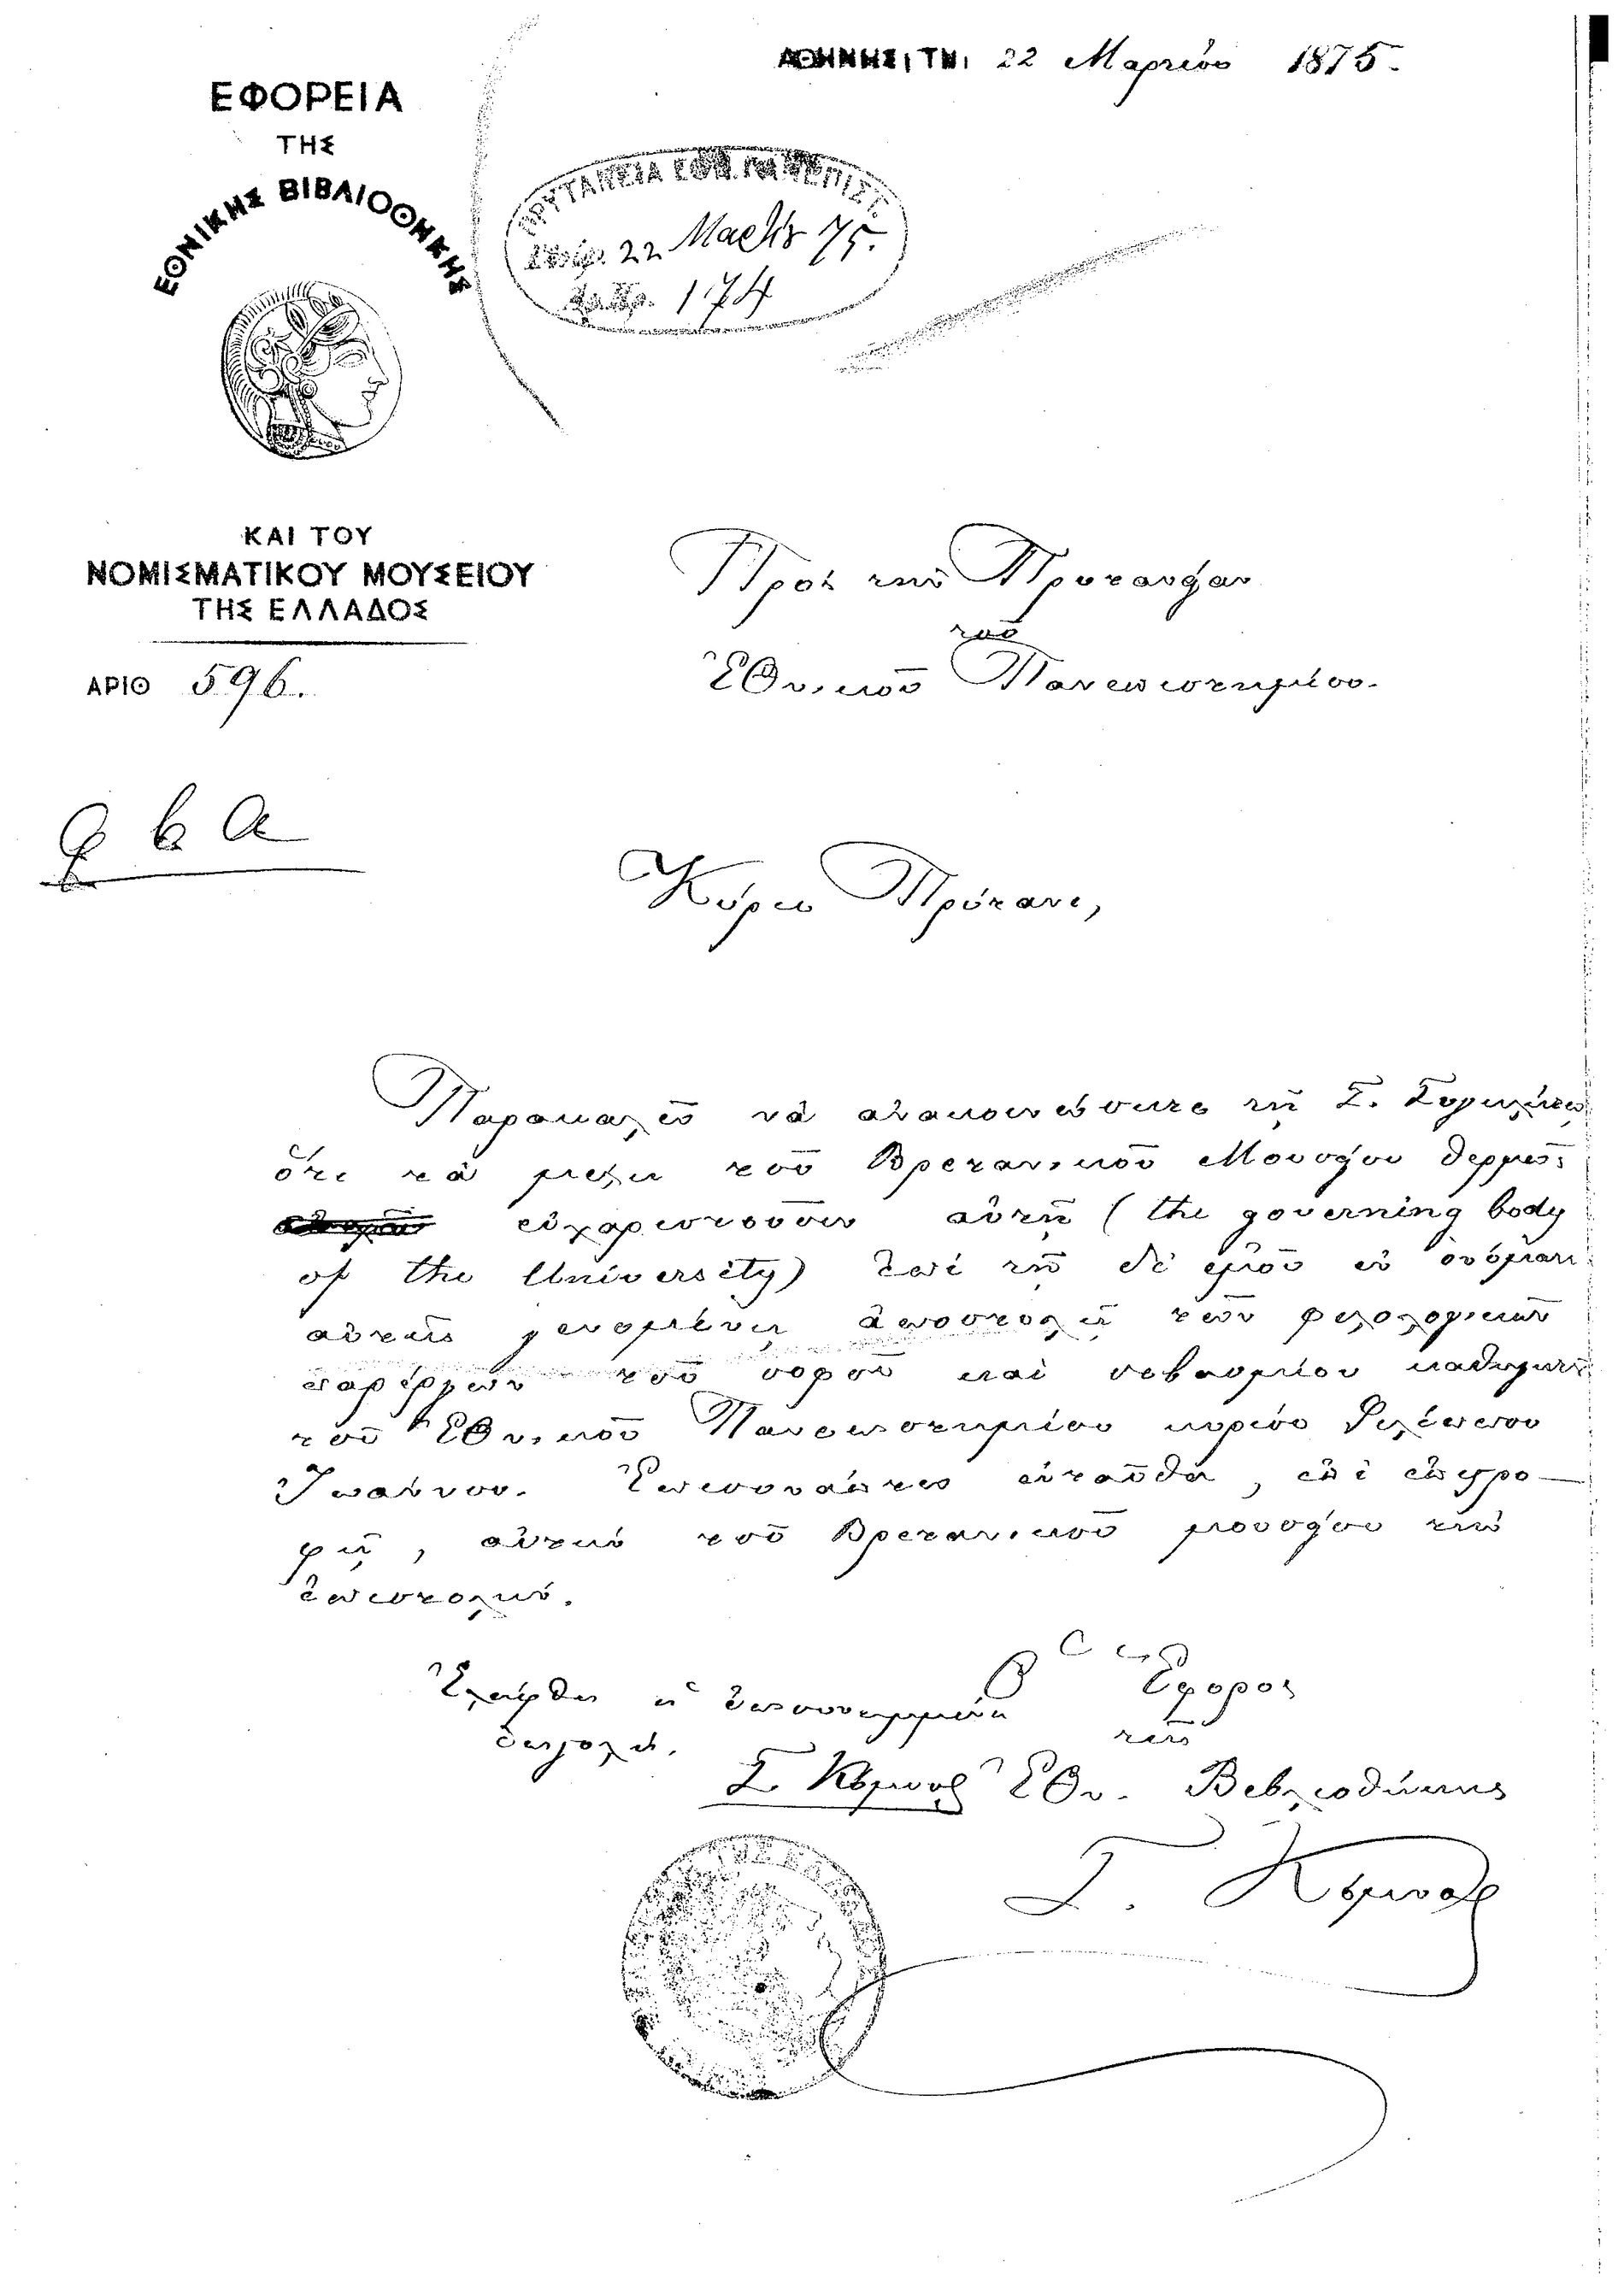 ΑΘΗΝΗΣΙ, ΤΗι 22 Μαρτίου 1875.
ΕΦΟΡΕΙΑ
ΤΗΣ
ΕΘΝΙΚΗΣ ΒΙΒΛΙΟΘΗΚΗΣ
ΠΡΥΤΑΝΕΙΑ ΕΘΝ. ΠΑΝΕΠΙΣΤ.
22 Μαρτίου 75.
174
ΚΑΙ ΤΟΥ
ΝΟΜΙΣΜΑΤΙΚΟΥ ΜΟΥΣΕΙΟΥ
ΤΗΣ ΕΛΛΑΔΟΣ
ΑΡΙΘ 596.
Πρὸς τὴν Πρυτανείαν
τοῦ
Ἐθνικοῦ Πανεπιστημίου.
Κύριε Πρύτανι,
Παρακαλῶ νὰ ἀνακοινώσητε τῇ Σ. Συγκλήτῳ
ὅτι τὰ μέλη τοῦ Βρετανικοῦ Μουσείου θερμῶς
εὐχαριστοῦσιν αὐτῇ (the governing body
of the University) ἐπὶ τῇ δι' ἐμοῦ ἐν ὀνόματι
αὐτῆς γενομένῃ ἀποστολῇ τῶν φιλολογικῶν
παρέργων τοῦ σοφοῦ καὶ σεβασμίου καθηγητοῦ
τοῦ Ἐθνικοῦ Πανεπιστημίου κυρίου Φιλίππου
Ἰωάννου. Ἐπισυνάπτω ἐνταῦθα, ἐπὶ ἐπιστρο-
φῇ, αὐτὴν τοῦ Βρετανικοῦ μουσείου τὴν
ἐπιστολήν.
Ὁ Ἔφορος
Ἐλήφθη ἡ ἐπισυνημμένη
ἐπιστολή.
τῆς
Σ. Κόμνος Ἐθν. Βιβλιοθήκης
Σ. Κόμνος